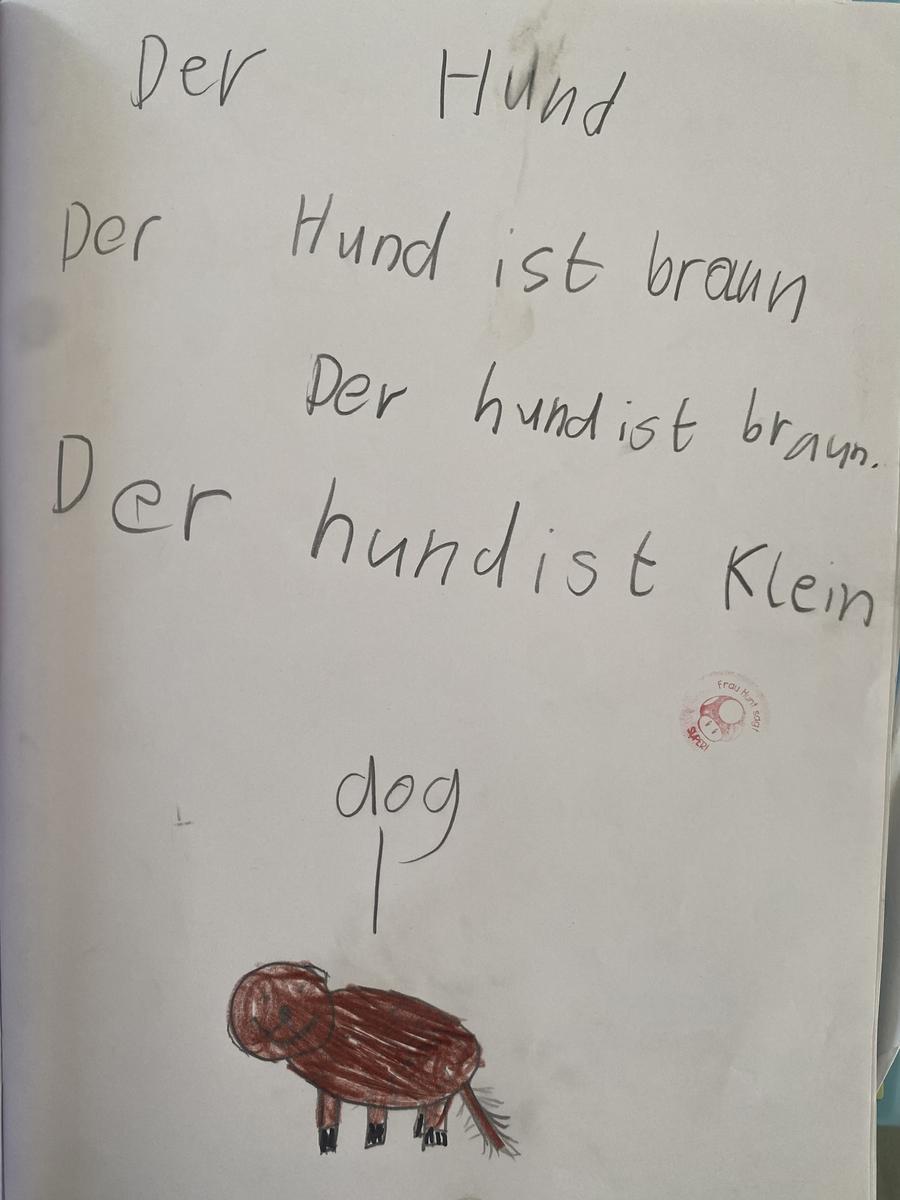 Der Hund
Der Hund ist braun
Der hund ist braun.
Der hund ist Klein
Frau Hunt sagt
SUPER!
dog